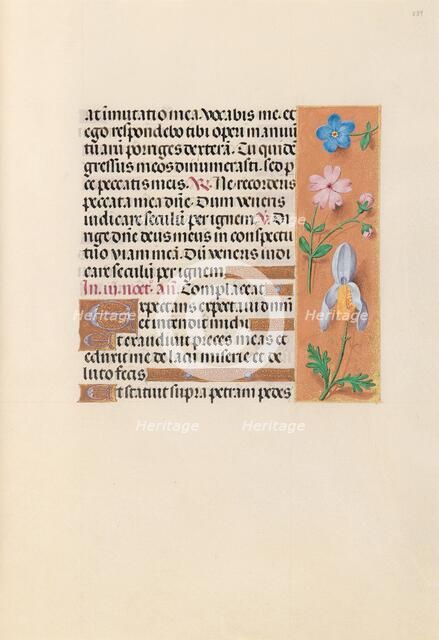 at īmutatio mea. Vocabis me. et
ego respondebo tibi operi manuū
tuaꝝ porriges dexterā. Tu quidē
gressus meos dinumerasti. sed p
ce peccatis meis. R. Ne recorderis
peccata mea dn̄e. Dum veneris
iudicare seculū per ignem. V. Di
rige dn̄e deus meus in conspectu
tuo viam meā. Dū veneris iudi
care seculū per ignem
In. iii. noct. añ. Complaceat
Expectans expectaui dn̄m
et intendit michi
Et exaudiuit preces meas et
eduxit me de lacu miserie et de
luto fecis
Et statuit supra petram pedes
Heritage
Images